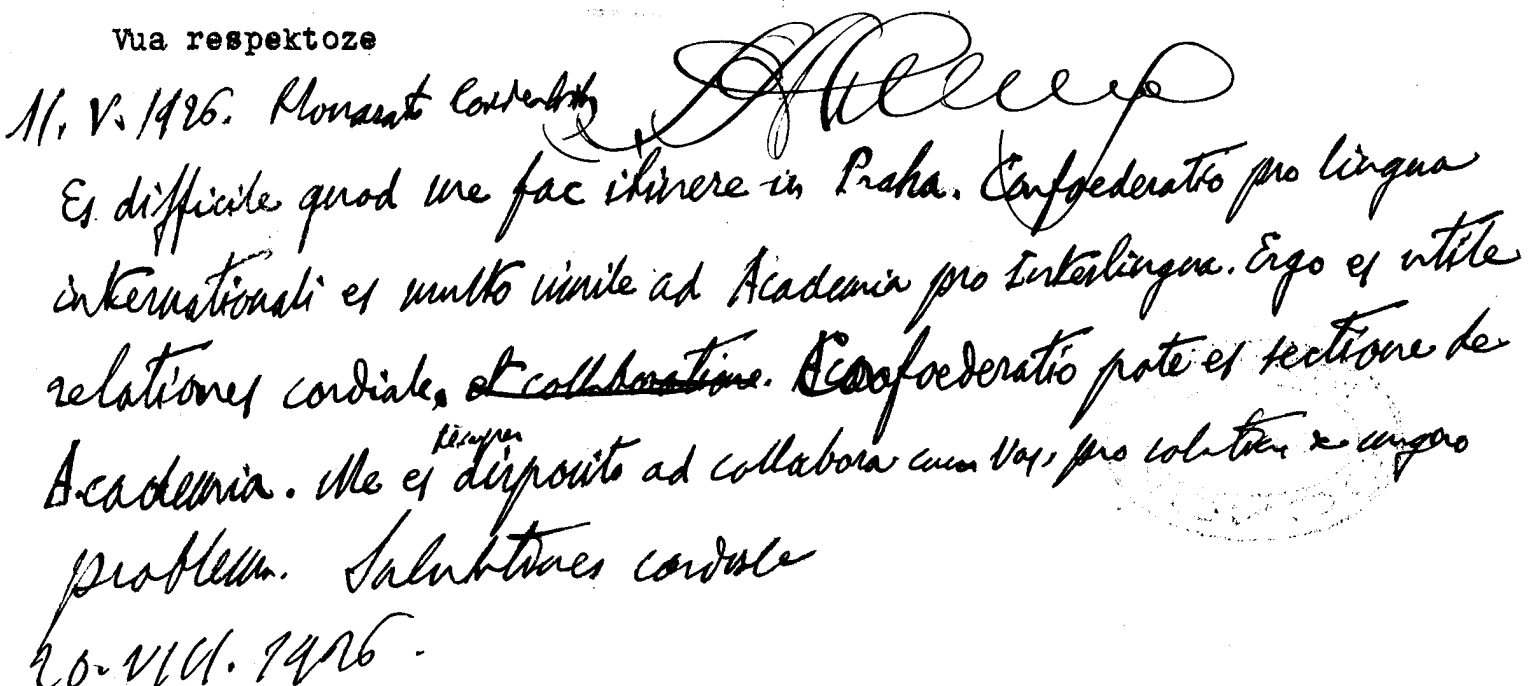 Vua respektoze
11. V. 1926.
Es difficile quod me fac itinere in Praha. Confoederatio pro lingua
internationali es multo simile ad Academia pro Interlingua. Ergo es utile
relationes cordiale, et collaboratione. Confoederatio pote es sectione de
Academia. Me es semper disposito ad collabora cum Vos, pro solutione de
problema. Salutationes cordiale
20. VIII. 1926.